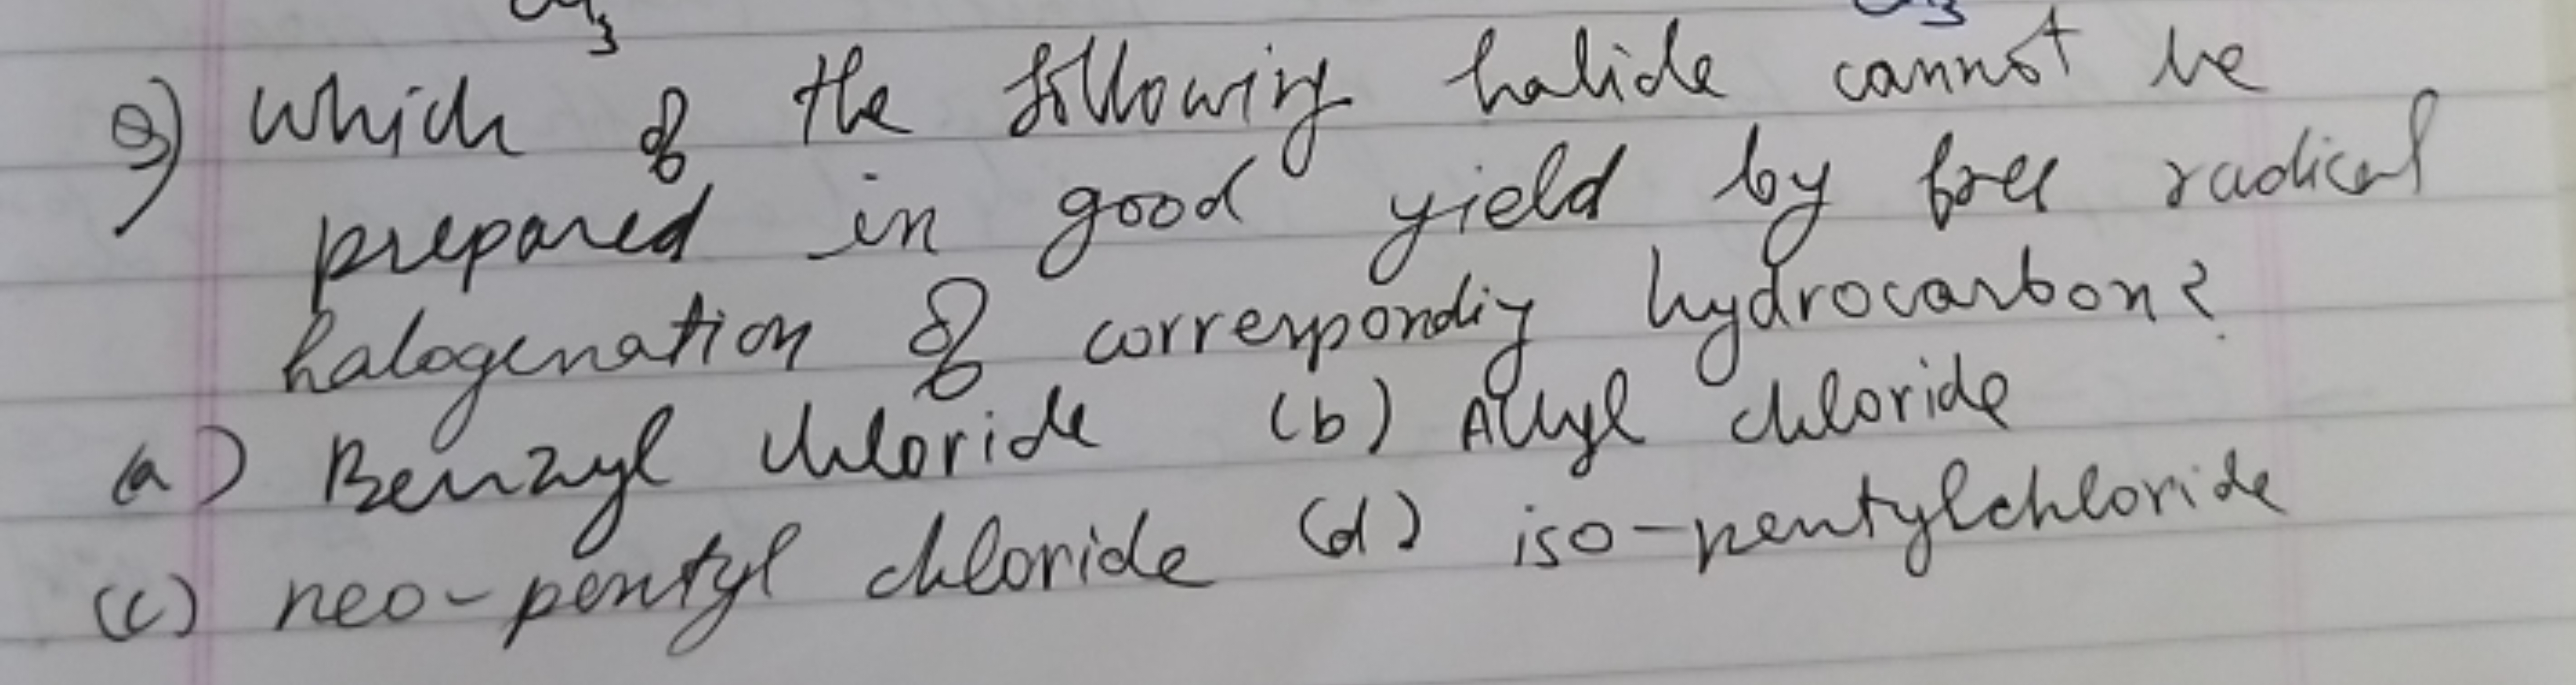 Q) Which of the following halide cannot be
prepared in good yield by free radical
halogenation of corresponding hydrocarbon?
(a) Benzyl chloride (b) Allyl chloride
(c) neo-pentyl chloride (d) iso-pentylchloride